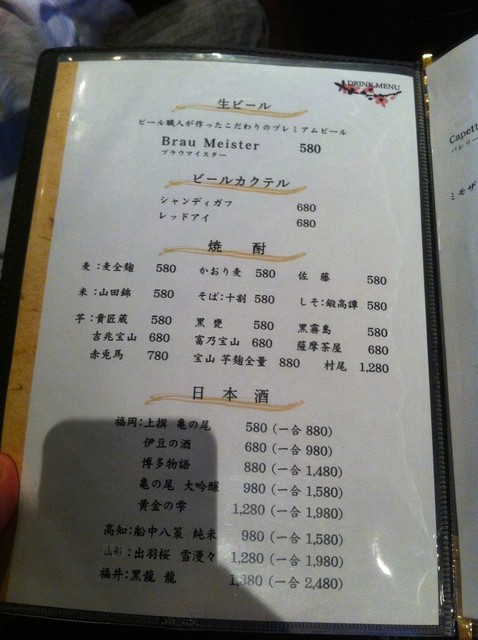 DRINK MENU
生ビール
ビール職人が作ったこだわりのプレミアムビール
Brau Meister 580
ブラウマイスター
ビールカクテル
シャンディガフ 680
レッドアイ 680
焼 酎
麦:麦全麹 580 かおり麦 580 佐 藤 580
米:山田錦 580 そば:十割 580 しそ:鍛高譚 580
芋:貴匠蔵 580 黒 甕 580 黒霧島 580
吉兆宝山 680 富乃宝山 680 薩摩茶屋 680
赤兎馬 780 宝山 芋麹全量 880 村尾 1,280
日 本 酒
福岡:上撰 亀の尾 580 (一合 880)
伊豆の酒 680 (一合 980)
博多物語 880 (一合 1,480)
亀の尾 大吟醸 980 (一合 1,580)
黄金の雫 1,280 (一合 1,980)
高知:船中八策 純米 980 (一合 1,580)
山形:出羽桜 雪漫々 1,280 (一合 1,980)
福井:黒龍 龍 1,380 (一合 2,480)
Capett
バレリー
ミモザ